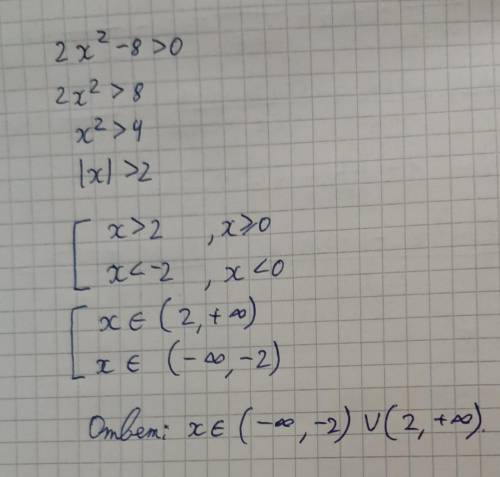 2x² - 8 > 0
2x² > 8
x² > 4
|x| > 2
[ x > 2 , x ≥ 0
x < -2 , x < 0
[ x ∈ (2, +∞)
x ∈ (-∞, -2)
Ответ: x ∈ (-∞, -2) ∨ (2, +∞).